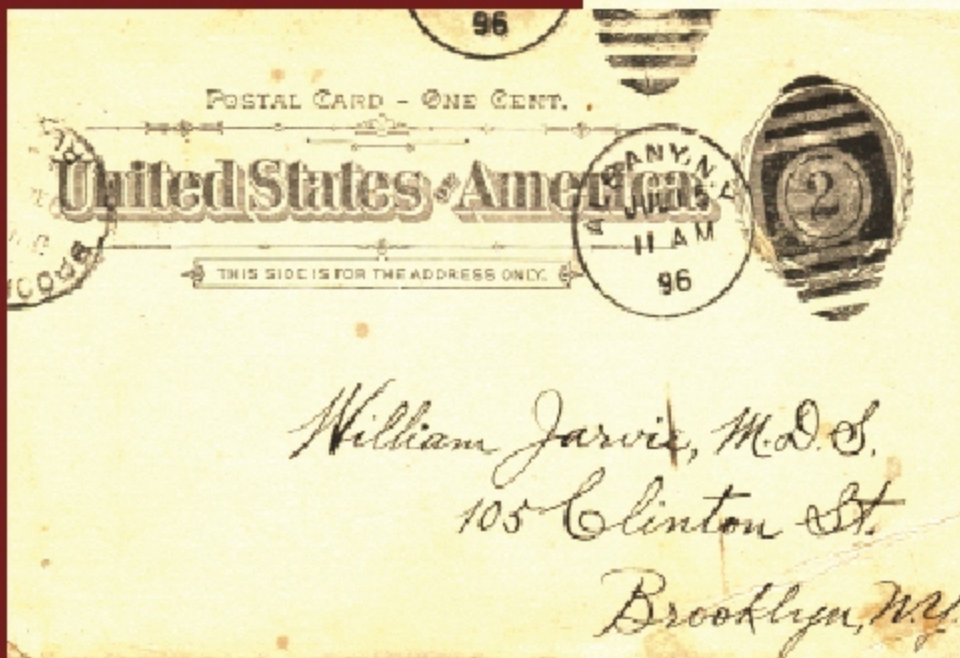 96
POSTAL CARD - ONE CENT.
United States of America.
THIS SIDE IS FOR THE ADDRESS ONLY.
ALBANY, N.Y.
11 AM
96
2
William Jarvie, M.D.S.
105 Clinton St.
Brooklyn, N.Y.